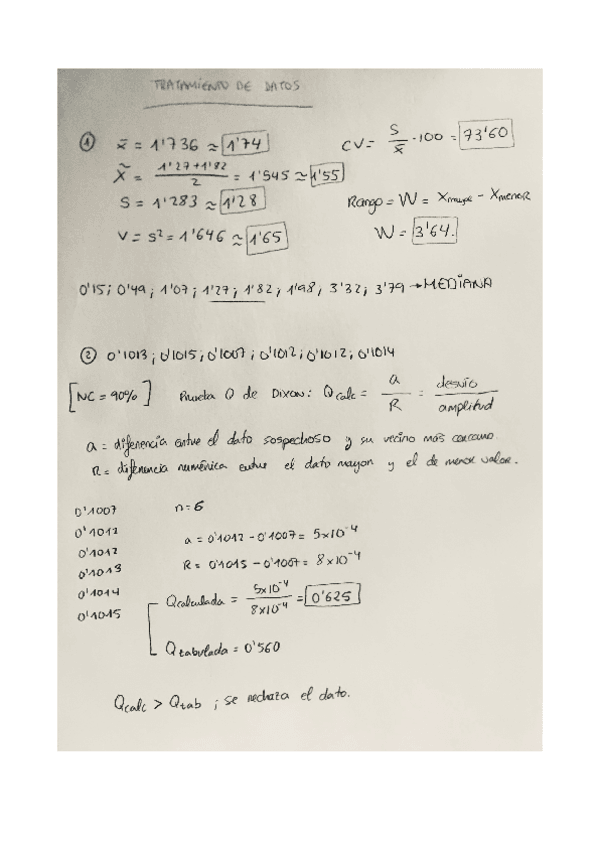 TRATAMIENTO DE DATOS
① x̄ = 1'736 ≈ 1'74
x̃ = (1'27+1'82)/2 = 1'545 ≈ 1'55
S = 1'283 ≈ 1'28
V = S² = 1'646 ≈ 1'65
CV = S/x̄ · 100 = 73'60
Rango = W = Xmayor - Xmenor
W = 3'64.
0'15; 0'49; 1'07; 1'27; 1'82; 1'98; 3'32; 3'79 → MEDIANA
② 0'1013; 0'1015; 0'1007; 0'1012; 0'1012; 0'1014
[NC = 90%] Prueba Q de Dixon: Qcalc = a/R = desvío/amplitud
a = diferencia entre el dato sospechoso y su vecino más cercano.
R = diferencia numérica entre el dato mayor y el de menor valor.
0'1007
0'1012
0'1012
0'1013
0'1014
0'1015
n=6
a = 0'1012 - 0'1007 = 5x10⁻⁴
R = 0'1015 - 0'1007 = 8x10⁻⁴
Qcalculada = 5x10⁻⁴/8x10⁻⁴ = 0'625
Qtabulada = 0'560
Qcalc > Qtab ; se rechaza el dato.